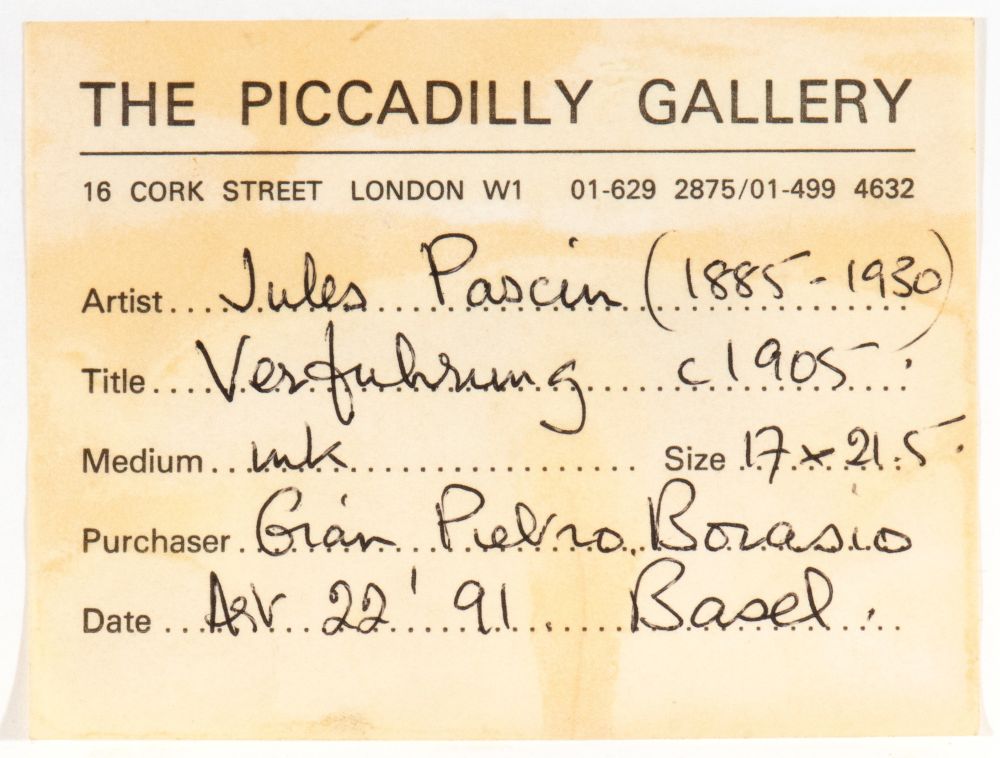 THE PICCADILLY GALLERY
16 CORK STREET LONDON W1 01-629 2875/01-499 4632
Artist....Jules Pascin (1885-1930)
Title....Verfuhrung c1905.
Medium...ink.................... Size 17 x 21.5.
Purchaser.Gian Pietro Borasio
Date ... 22 '91 Basel.